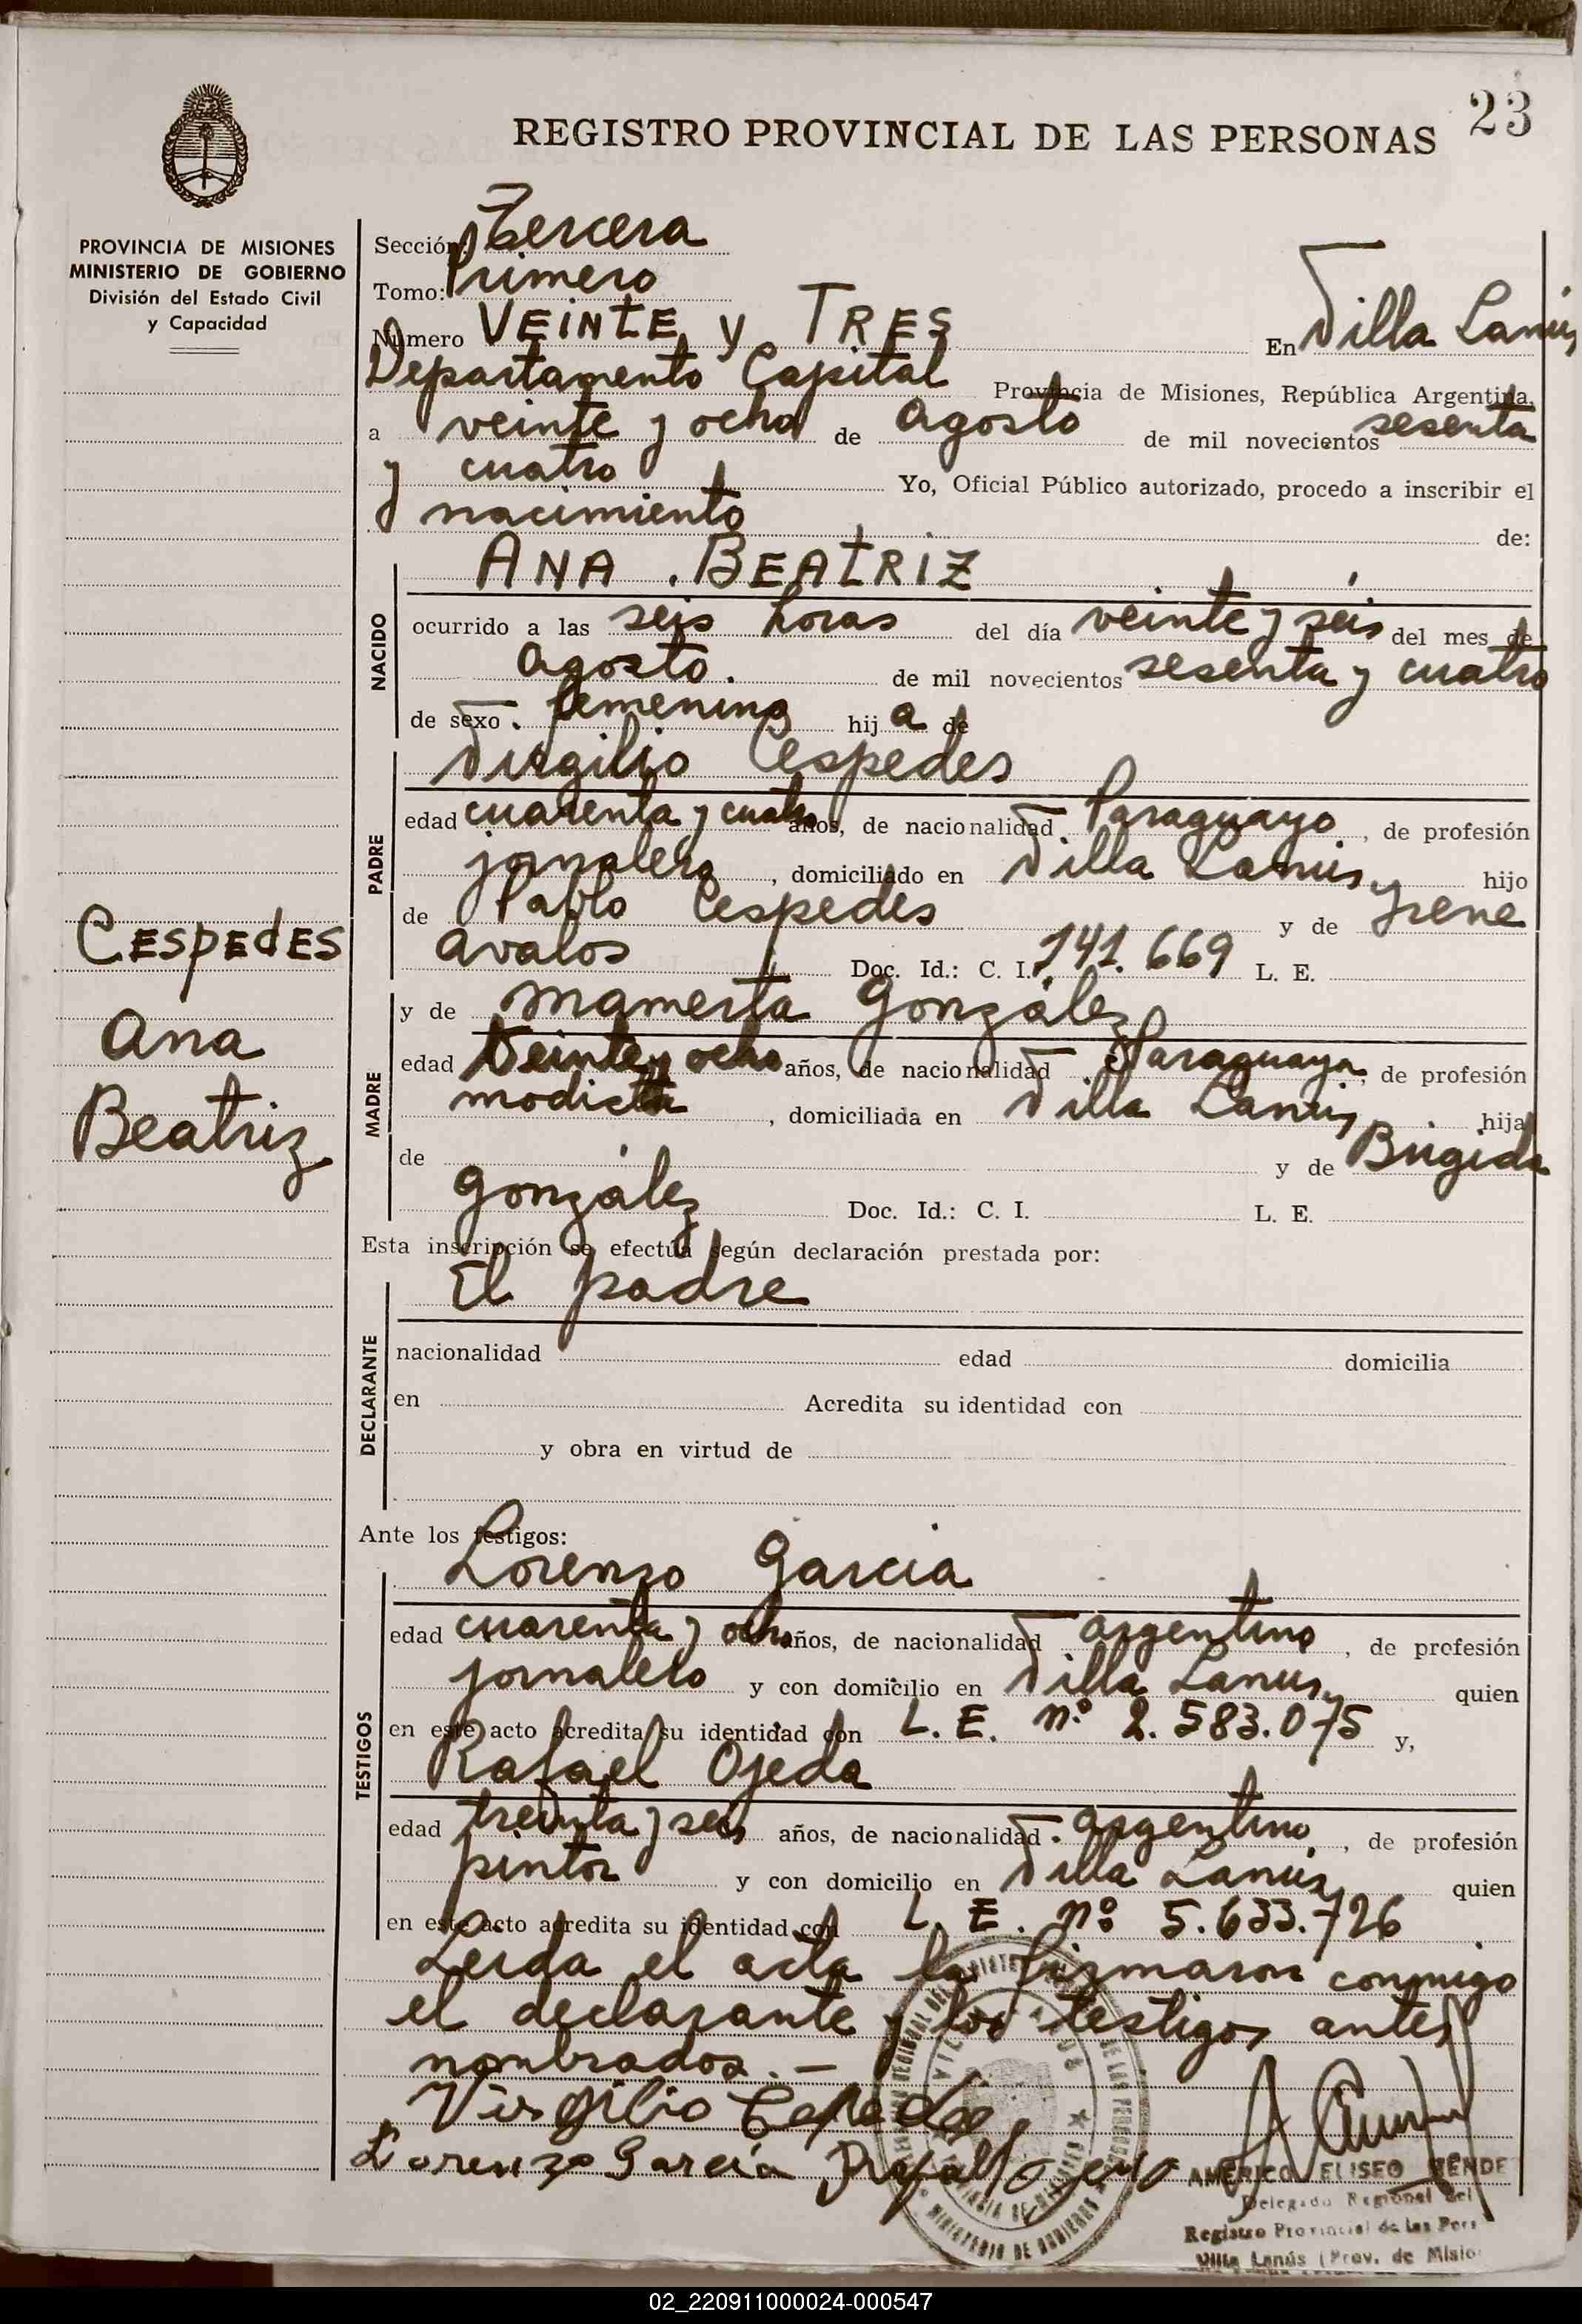 23
REGISTRO PROVINCIAL DE LAS PERSONAS
PROVINCIA DE MISIONES
MINISTERIO DE GOBIERNO
División del Estado Civil
y Capacidad
Sección: Tercera
Tomo: Primero
Número VEINTE y TRES En Villa Lanús
Departamento Capital Provincia de Misiones, República Argentina,
a veinte y ocho de Agosto de mil novecientos sesenta
y cuatro Yo, Oficial Público autorizado, procedo a inscribir el
nacimiento de:
ANA BEATRIZ
NACIDO
ocurrido a las seis horas del día veinte y seis del mes de
Agosto de mil novecientos sesenta y cuatro
de sexo femenino hija de
Virgilio Cespedes
PADRE
edad cuarenta y cuatro años, de nacionalidad Paraguayo, de profesión
jornalero, domiciliado en Villa Lanús, hijo
de Pablo Cespedes y de Yrene
Avalos Doc. Id.: C. I. 141.669 L. E.
y de Mamerta González
MADRE
edad Veinte y ocho años, de nacionalidad Paraguaya, de profesión
modista, domiciliada en Villa Lanús, hija
de y de Brigida
González Doc. Id.: C. I. L. E.
Esta inscripción se efectúa según declaración prestada por:
El padre
DECLARANTE
nacionalidad edad domicilia
en Acredita su identidad con
y obra en virtud de
Cespedes
Ana
Beatriz
Ante los testigos:
Lorenzo Garcia
TESTIGOS
edad cuarenta y ocho años, de nacionalidad argentino, de profesión
jornalero y con domicilio en Villa Lanus, quien
en este acto acredita su identidad con L. E. nº 2.583.075 y,
Rafael Ojeda
edad treinta y seis años, de nacionalidad argentino, de profesión
pintor y con domicilio en Villa Lanús, quien
en este acto acredita su identidad con L. E. nº 5.633.726
Leida el acta la firmaron conmigo
el declarante y los testigos antes
nombrados.—
Virgilio Cespedes
Lorenzo Garcia Rafael Ojeda
AMERICO ELISEO MENDE
Delegado Regional del
Registro Provincial de las Pers
Villa Lanús (Prov. de Misio
02_220911000024-000547